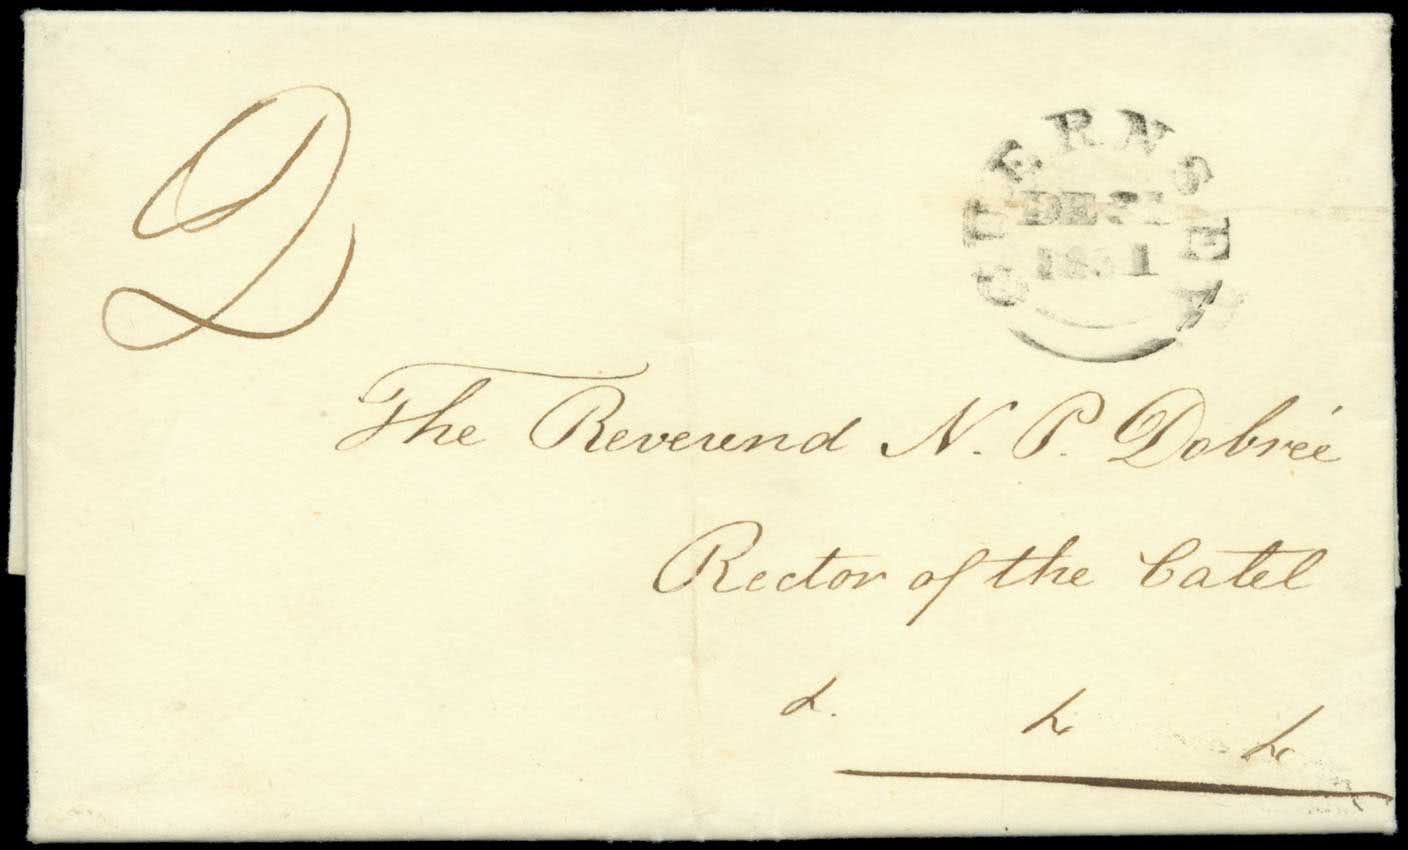 2
GUERNSEY
1831
The Reverend N. P. Dobrée
Rector of the Catel